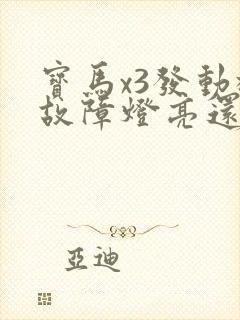 寶馬x3發動
故障燈亮還
亞迪